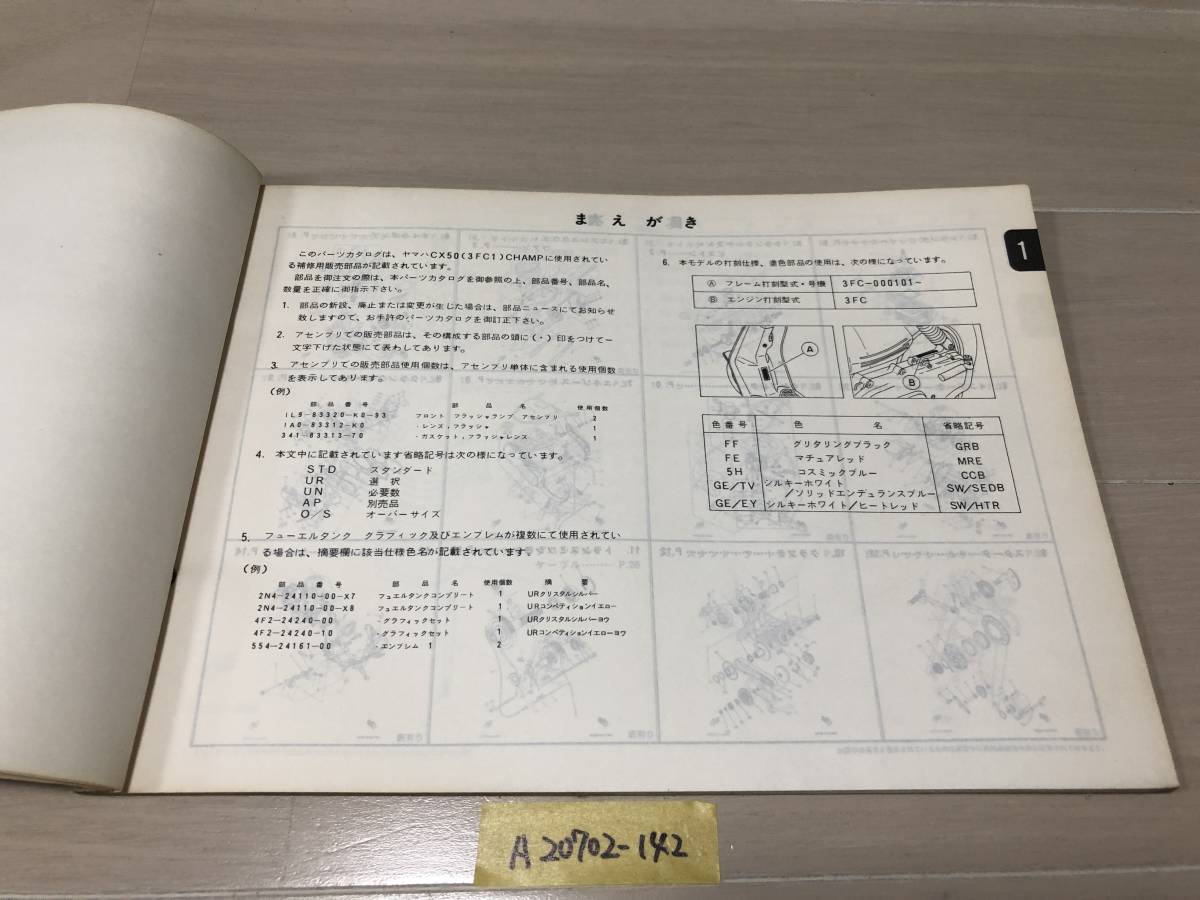 まえがき
1
このパーツカタログは、ヤマハCX50(3FC1)CHAMPに使用されてい
る補修用販売部品が記載されています。
部品を御注文の際は、本パーツカタログを御参照の上、部品番号、部品名、
数量を正確に御指示下さい。
1. 部品の新設、廃止または変更が生じた場合は、部品ニュースにてお知らせ
致しますので、お手許のパーツカタログを御訂正下さい。
2. アセンブリでの販売部品は、その構成する部品の頭に(・)印をつけて一
文字下げた状態にて表わしてあります。
3. アセンブリでの販売部品使用個数は、アセンブリ単体に含まれる使用個数
を表示してあります。
(例)
部品番号 部品名 使用個数
1L9-83320-K0-93 フロント フラッシャランプ アセンブリ 2
1A0-83312-K0 ・レンズ,フラッシャ 1
341-83313-70 ・ガスケット,フラッシャレンズ 1
4. 本文中に記載されています省略記号は次の様になっています。
STD スタンダード
UR 選択
UN 必要数
AP 別売品
O/S オーバーサイズ
5. フューエルタンク グラフィック及びエンブレムが複数にて使用されてい
る場合は、摘要欄に該当仕様色名が記載されています。
(例)
部品番号 部品名 使用個数 摘要
2N4-24110-00-X7 フュエルタンクコンプリート 1 URクリスタルシルバー
2N4-24110-00-X8 フュエルタンクコンプリート 1 URコンペティションイエロー
4F2-24240-00 ・グラフィックセット 1 URクリスタルシルバーヨウ
4F2-24240-10 ・グラフィックセット 1 URコンペティションイエローヨウ
554-24161-00 ・エンブレム 1 2
6. 本モデルの打刻仕様、着色部品の使用は、次の様になっています。
Ⓐ フレーム打刻型式・号機 3FC-000101~
Ⓑ エンジン打刻型式 3FC
A
B
色番号 色名 省略記号
FF グリタリングブラック GRB
FE マチュアレッド MRE
5H コスミックブルー CCB
GE/TV シルキーホワイト/ソリッドエンデュランスブルー SW/SEDB
GE/EY シルキーホワイト/ヒートレッド SW/HTR
A20702-142